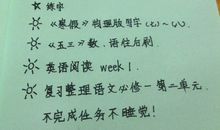 ☆ 练字
☼ 《寒假》物理版图字(七)~(八).
☼ 《五三》数、语往后刷.
☼ 英语阅读 week 1.
☼ 复习整理语文必修一第二单元.
不完成任务不睡觉!